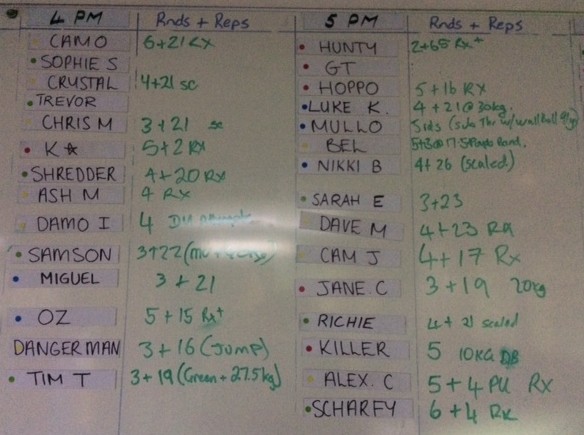 4 PM Rnds + Reps
CAMO 6+21 Rx
SOPHIE S
CRYSTAL 4+21 sc
TREVOR
CHRIS M 3+21 sc
K☆ 5+2 Rx
SHREDDER 4+20 Rx
ASH M 4 Rx
DAMO I 4
SAMSON 3+22
MIGUEL 3 + 21
OZ 5+15 Rx+
DANGERMAN 3+16 (Jump)
TIM T 3+19 (Green + 27.5kg)
5 PM Rnds + Reps
HUNTY 2+65 Rx+
GT
HOPPO 5+16 Rx
LUKE K. 4 + 21 @ 30kg.
MULLO
BEL
NIKKI B 4+26 (scaled)
SARAH E 3+23
DAVE M 4+23 RX
CAM J 4+17 Rx
JANE.C 3+19 20kg
RICHIE 4+21 scaled
KILLER 5 10KG DB
ALEX.C 5+4 PU Rx
SCHARFY 6+4 RX